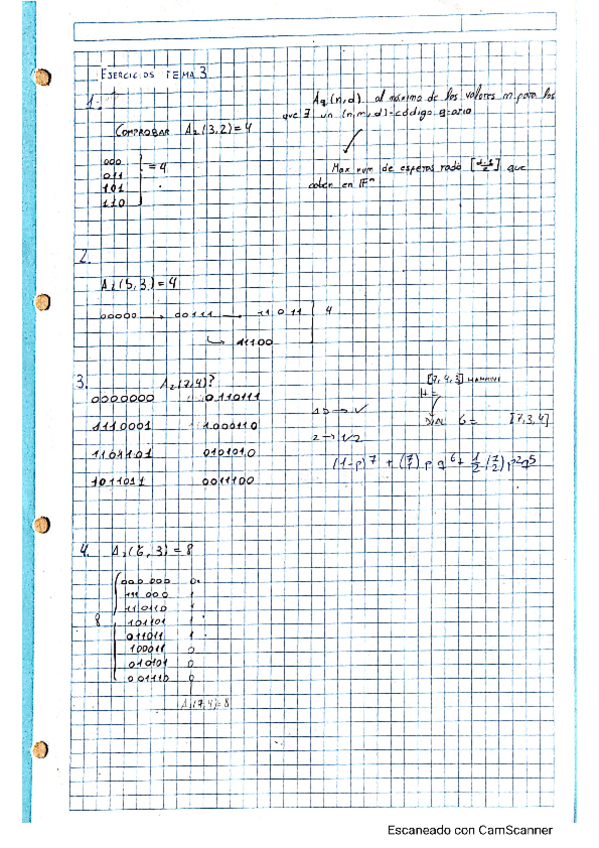 EJERCICIOS TEMA 3
1.
A₂(n,d) al máximo de los valores m para los
que ∃ un (n,m,d)-código q-ario
COMPROBAR A₂(3,2)=4
000
011
101
110
=4
Max num de esferas radio [d-1/2] que
caben en Fⁿ
2.
A₂(5,3)=4
00000 → 00111 → 11011
4
11100
3. A₂(7,4)?
0000000 0110111
1110001 1000110
1101101 0101010
1011011 0011100
[7,4,3] HAMMING
H=
DUAL G= [7,3,4]
1→ ✓
2→ 1/2
(1-p)⁷ + (7/1) p q⁶ + 1/2 (7/2) p²q⁵
4. A₂(6,3)=8
000000 0
111000 1
110110 1
101101 1
011011 1
100011 0
010101 0
001110 0
8
A₂(7,4)=8
Escaneado con CamScanner